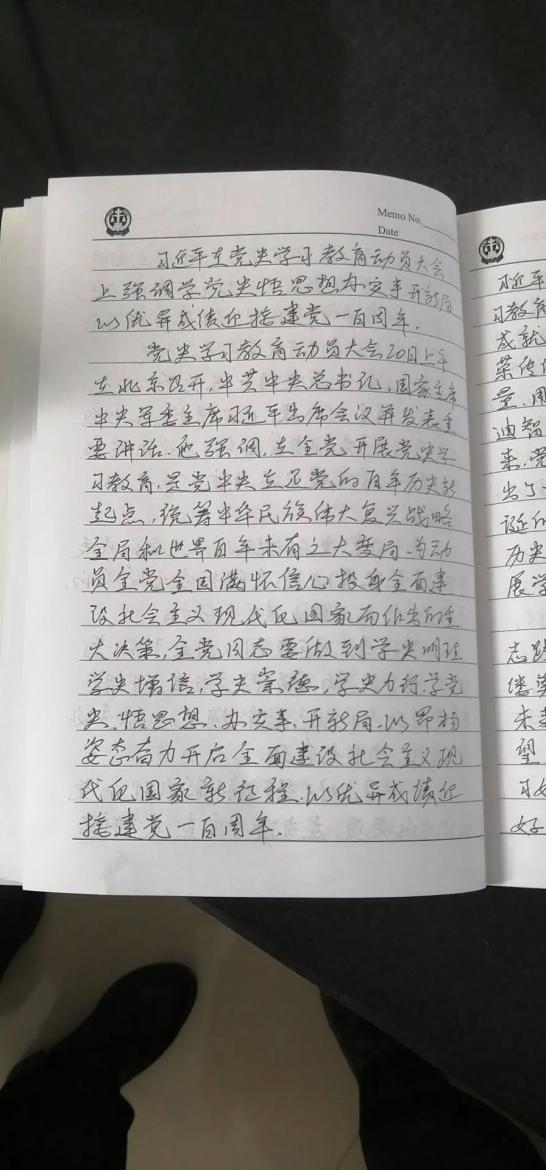 Memo No.
Date
习近平在党史学习教育动员大会
上强调学党史悟思想办实事开新局
以优异成绩迎接建党一百周年.
党史学习教育动员大会20日上午
在北京召开,中共中央总书记,国家主席
中央军委主席习近平出席会议并发表重
要讲话.他强调,在全党开展党史学
习教育,是党中央立足党的百年历史新
起点,统筹中华民族伟大复兴战略
全局和世界百年未有之大变局.为动
员全党全国满怀信心投身全面建
设社会主义现代化国家而作出的重
大决策,全党同志要做到学史明理
学史增信,学史崇德,学史力行.学党
史.悟思想.办实事.开新局.以昂扬
姿态奋力开启全面建设社会主义现
代化国家新征程.以优异成绩迎
接建党一百周年.
习近平
习教育
成就
菜传
量,用
迪智
来,党
出了一
诞们
历史
展学
志
缕
未
望
习
好